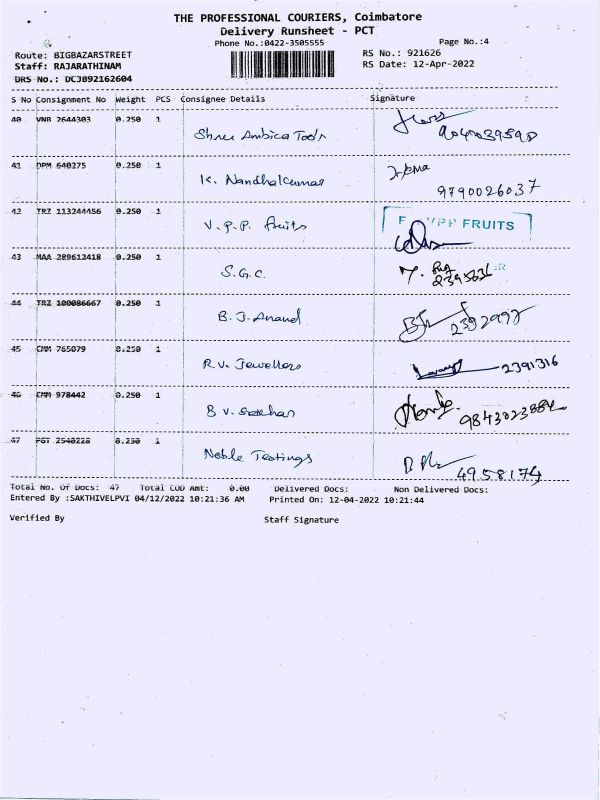 THE PROFESSIONAL COURIERS, Coimbatore
Delivery Runsheet - PCT
Phone No.:0422-3505555 Page No.:4
Route: BIGBAZARSTREET RS No.: 921626
Staff: RAJARATHINAM RS Date: 12-Apr-2022
DRS No.: DCJB92162604
S No Consignment No Weight PCS Consignee Details Signature
40 VNB 2644303 0.250 1
Shree Ambica Tools 9040039590
41 DPM 640275 0.250 1
K. Nandhakumar 9790026037
42 TRZ 113244456 0.250 1
V.P.P. fruits VPP FRUITS
43 MAA 289612418 0.250 1
S.G.C.
44 TRZ 100086667 0.250 1
B.J. Anand 2392992
45 CMM 765079 0.250 1
R.V. Jewellers 2391316
46 CMM 978442 0.250 1
B V. 9843023884
47 PGT 2540228 0.250 1
Noble Testings 4958174
Total No. Of Docs: 47 Total COD Amt: 0.00 Delivered Docs: Non Delivered Docs:
Entered By :SAKTHIVELPVI 04/12/2022 10:21:36 AM Printed On: 12-04-2022 10:21:44
Verified By Staff Signature